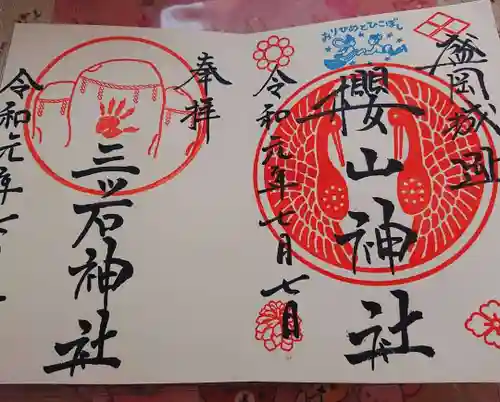 盛岡城岡
おりひめとひこぼし
櫻山神社
令和元年七月七日
奉拝
三ツ石神社
令和元年七